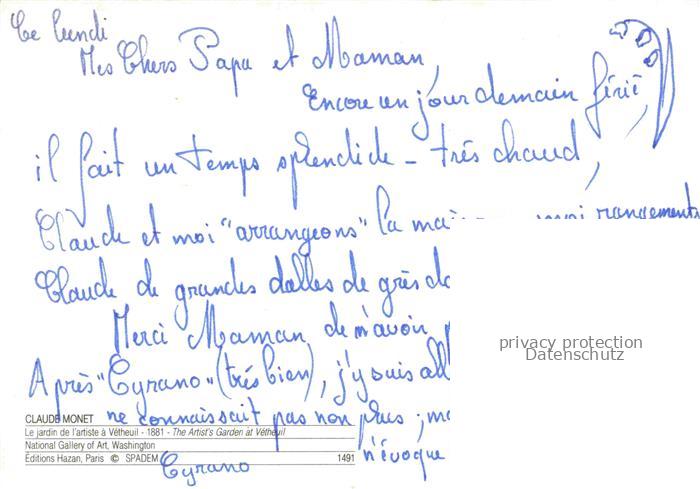 Ce lundi
Mes Chers Papa et Maman,
Encore un jour demain férié,
il fait un temps splendide - très chaud,
Claude et moi "arrangeons" la mai moi rangements
Claude de grandes dalles de grès da
Merci Maman, de m'avoir
Après "Cyrano" (très bien), j'y suis all
ne connaissait pas non plus ; ma
n'évoque
Cyrano
CLAUDE MONET
Le jardin de l'artiste à Vétheuil - 1881 - The Artist's Garden at Vétheuil
National Gallery of Art, Washington
Éditions Hazan, Paris © SPADEM 1491
privacy protection
Datenschutz